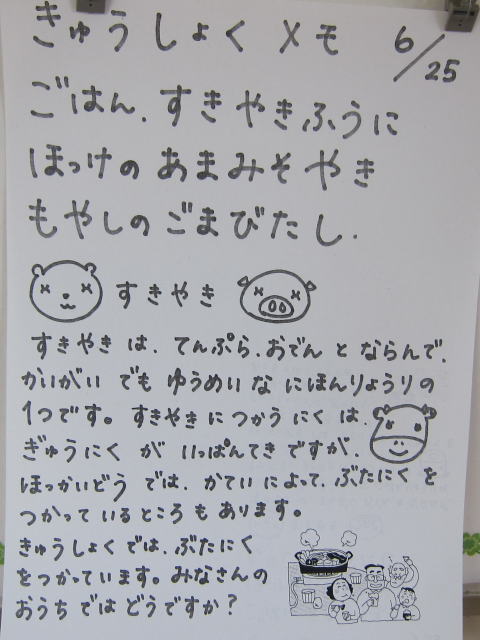 きゅうしょくメモ 6/25
ごはん.すきやきふうに
ほっけのあまみそやき
もやしのごまびたし.
すきやき
すきやきは.てんぷら.おでんとならんで.
かいがいでもゆうめいなにほんりょうりの
1つです。すきやきにつかうにくは.
ぎゅうにくがいっぱんてきですが.
ほっかいどうでは.かていによって.ぶたにくを
つかっているところもあります。
きゅうしょくでは.ぶたにく
をつかっています。みなさんの
おうちではどうですか?